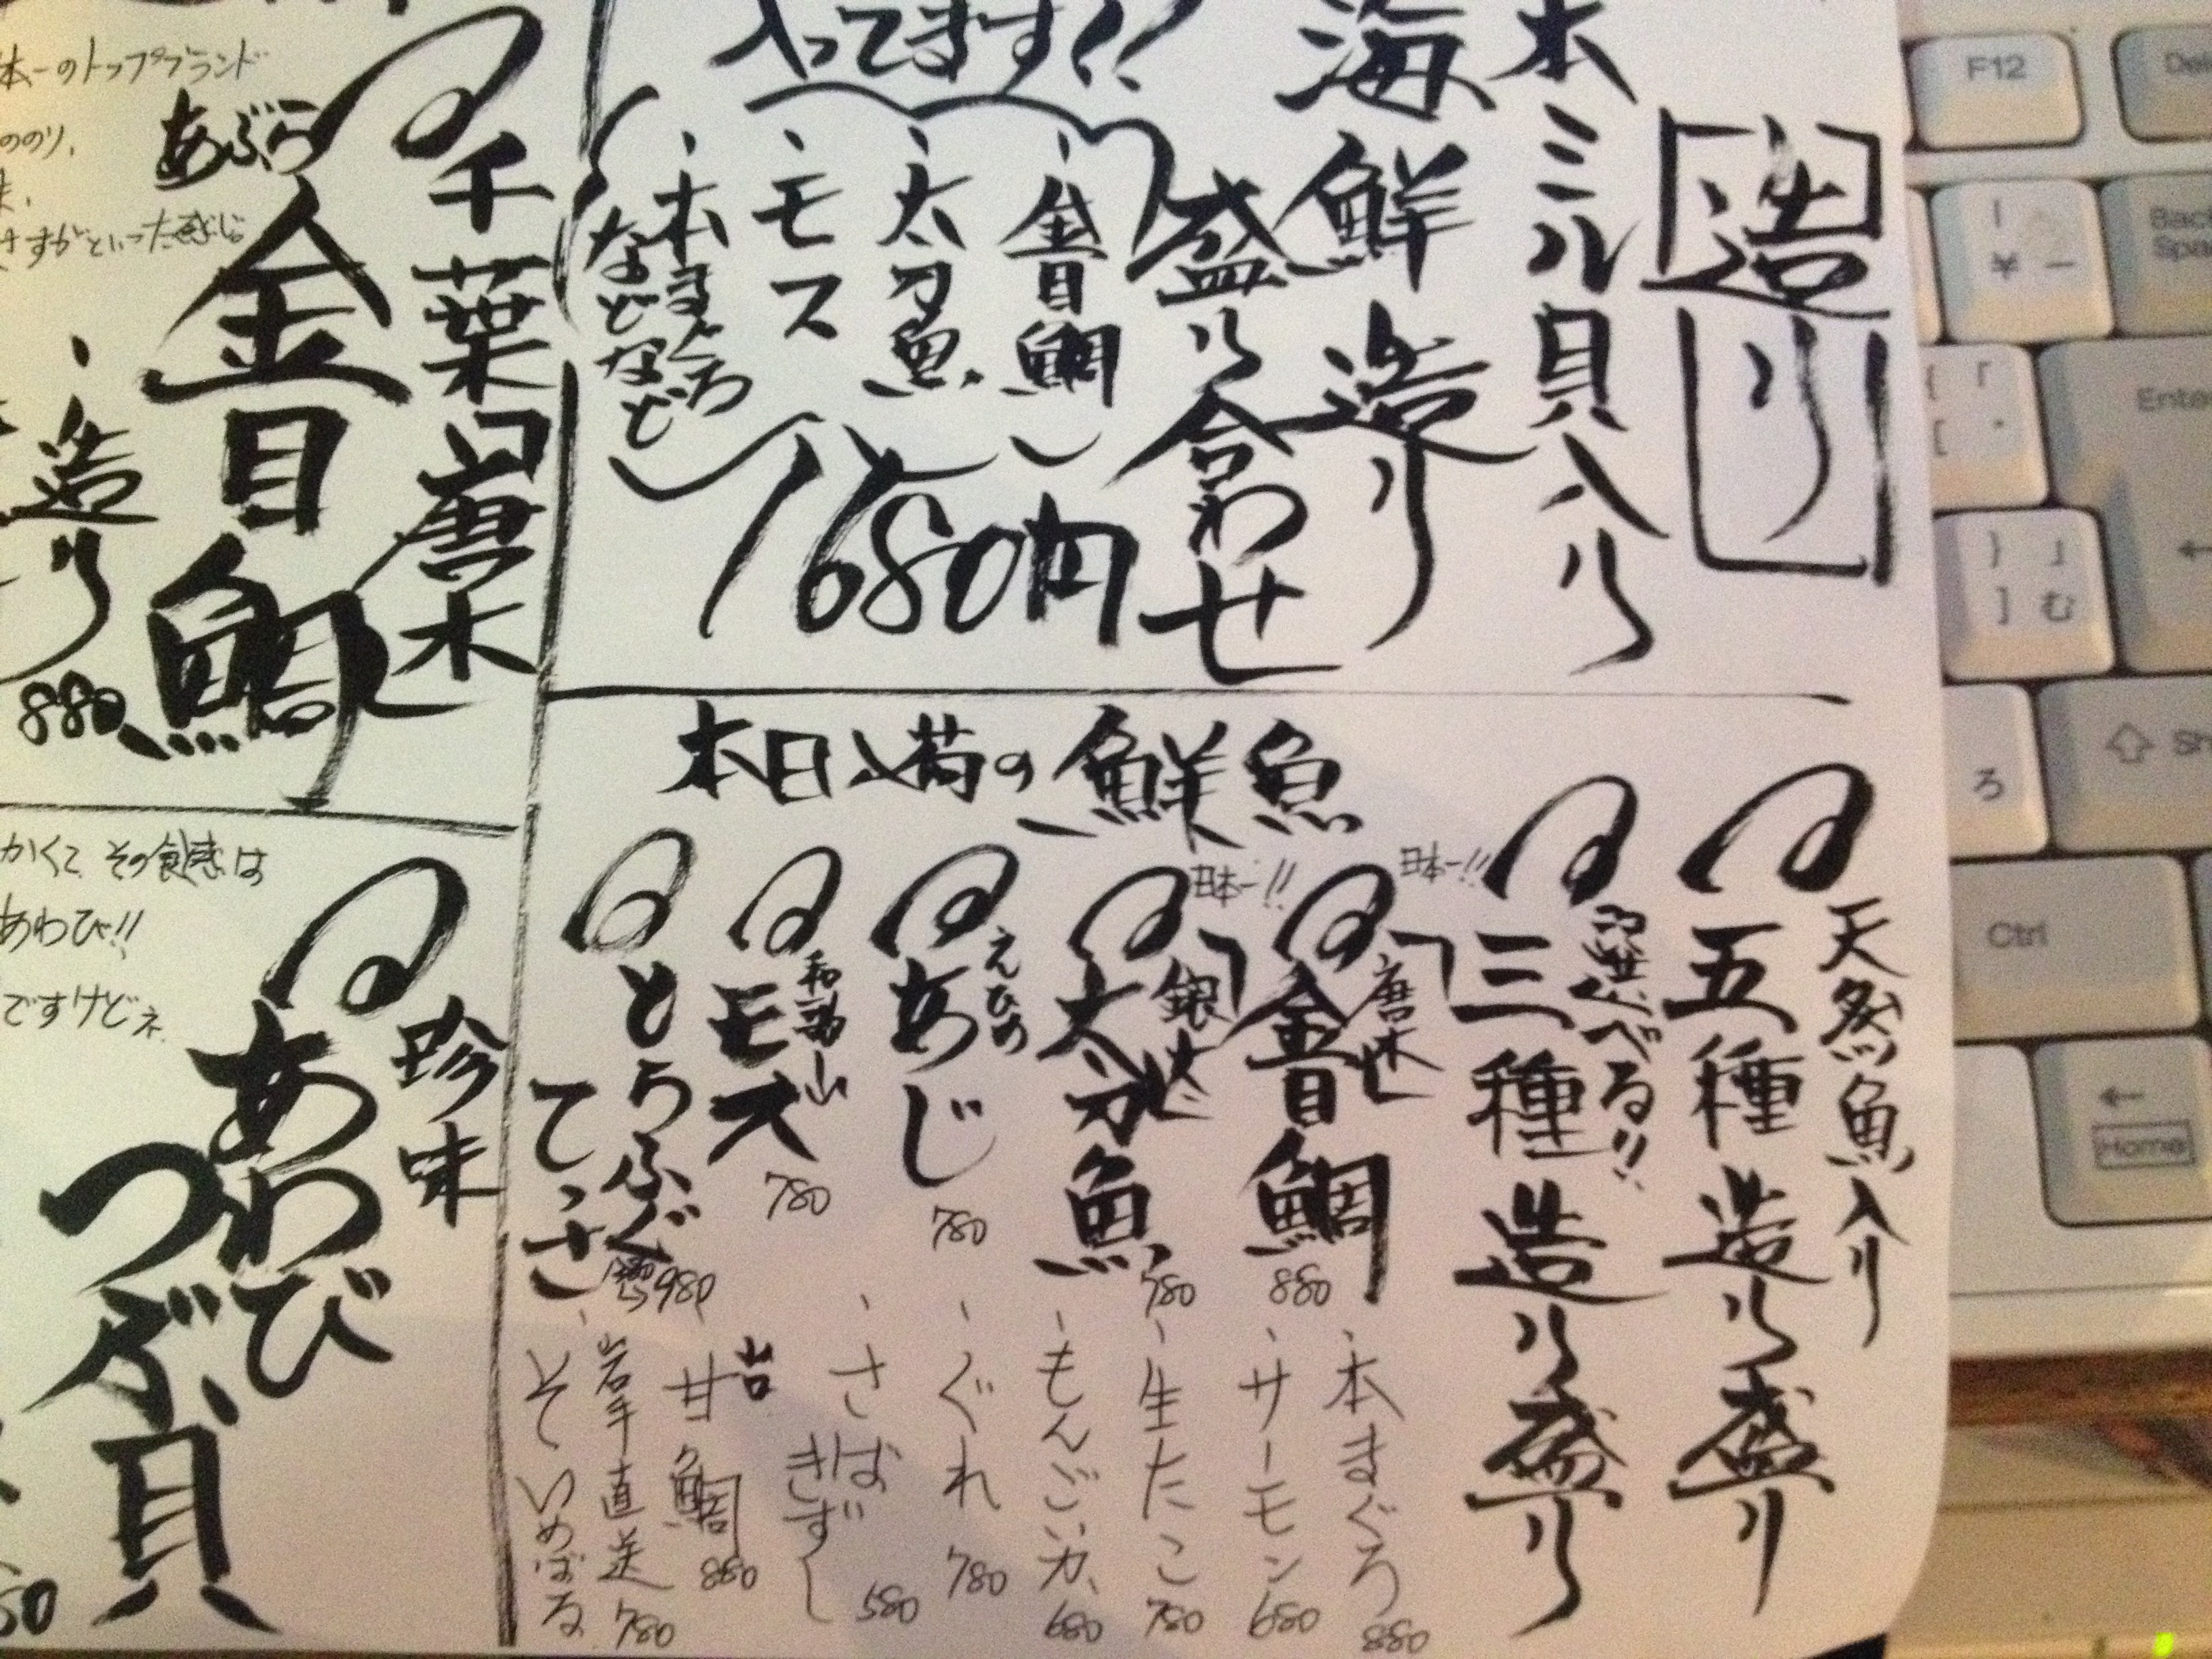 造り
本ミル貝入り
海鮮造り
盛り合わせ
、金目鯛
、太刀魚
、モス
、本まぐろ
などなど
1680円
入ってます!!
本日入荷の鮮魚
天然魚入り
五種造り盛り
選べる!!
三種造り盛り
日本一!!
金目鯛
880
日本一!!
太刀魚
780
えひめ
あじ
780
和歌山
モス
780
とらふぐ
てっさ
980
、本まぐろ
880
、サーモン
680
、生たこ
780
、もんごいか
680
、ぐれ
780
、さば
きずし
580
、甘鯛
880
、岩手直送
そいめばる
780
千葉
金目鯛
あぶら
、造り
880
本一のトップブランド
ののり、
さすがといった感じ
珍味
あわび
つぶ貝
かくて その食感は
あわび!!
ですけどネ
F12
Del
Back
Space
Enter
Ctrl
Home
ろ
む